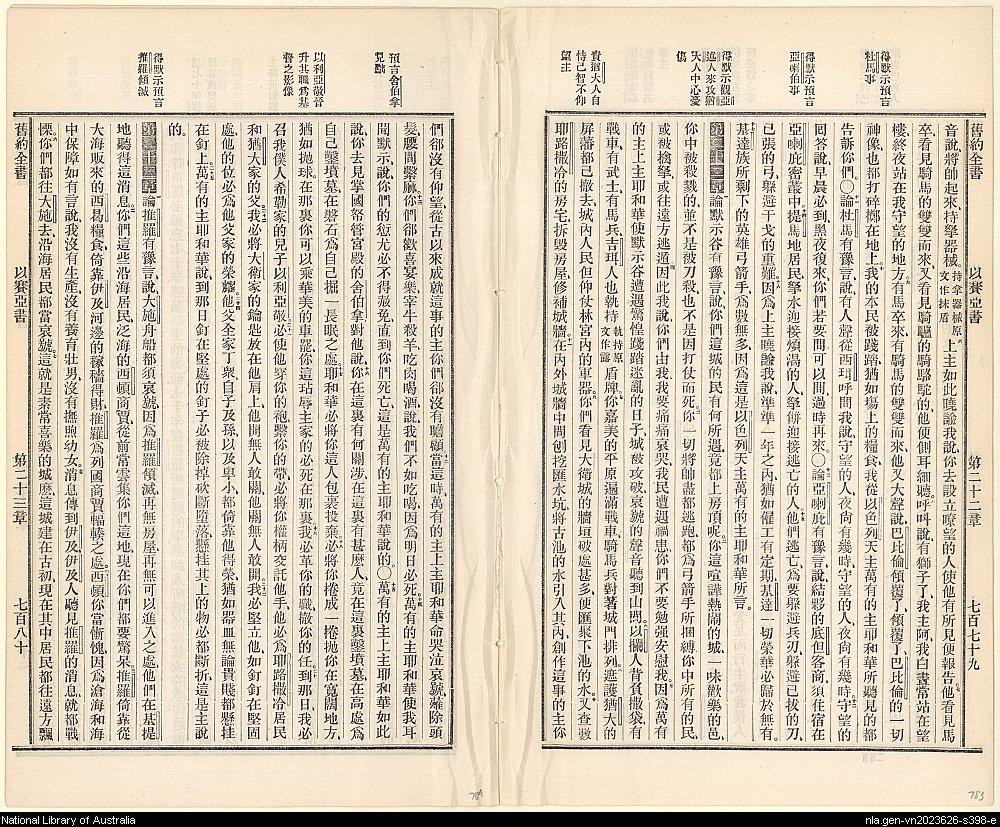 舊約全書 以賽亞書 第二十二章 七百七十九
得默示預言
杜馬事
得默示預言
亞喇伯事
得默示觀亞
述人來攻猶
大人中心憂
傷
責猶大人自
恃己智不仰
望主
音說將帥起來持拏器械持拏器械原文作抹盾上主如此曉諭我說你去設立瞭望的人使他有所見便報告他看見馬
卒看見騎馬的雙雙而來又看見騎驢的騎駱駝的他便側耳細聽呼叫說有獅子了我主阿我白晝常站在望
樓終夜站在我守望的地方有馬卒來有騎馬的雙雙而來他又大聲說巴比倫傾覆了傾覆了巴比倫的一切
神像也都打碎擲在地上我的本民被踐踏猶如場上的糧食我從以色列天主萬有的主耶和華所聽見的都
告訴你們〇論杜馬有豫言說有人聲從西珥呼問我說守望的人夜尙有幾時守望的人夜尙有幾時守望的
回答說早晨必到黑夜復來你們若要問可以問過時再來〇論亞喇庇有豫言說結夥的底但客商須住宿在
亞喇庇密叢中提馬地居民拏水迎接煩渴的人拏餅迎接逃亡的人他們逃亡爲要躲避兵刃躲避已拔的刀
已張的弓躲避干戈的重難因爲上主曉諭我說準準一年之內猶如僱工有定期基達一切榮華必歸於無有
基達族所剩下的英雄弓箭手爲數無多因爲這是以色列天主萬有的主耶和華所言
第二十二章論默示谷有豫言說你們這城的民有何所遇竟都上房頂呢你這喧譁熱鬧的城一味歡樂的邑
你中被殺戮的並不是被刀殺也不是因打仗而死你一切將帥盡都逃跑都爲弓箭手所捆縛你中所有的民
或被擒拏或往遠方逃遁因此我說你們由我我要痛痛哀哭我民遭遇禍患你們不要勉强安慰我因爲萬有
的主上主耶和華使默示谷遭遇驚惶踐踏迷亂的日子城被攻破哀號的聲音聽到山間以攔人背負撒袋有
戰車有武士有馬兵吉珥人也執持執持原文作露盾牌你嘉美的平原遍滿戰車騎馬兵對著城門排列遮護猶大的
屏藩都已撤去城內人民但仰仗林宮內的軍器你們看見大衛城的牆垣破處甚多便匯聚下池的水又查數
耶路撒冷的房宅拆毀房屋修補城牆在內外城牆中間刨挖匯水坑將古池的水引入其內創作這事的主你
預言舍伯拿
見黜
以利亞敬晉
升其職爲基
督之影像
得默示預言
推羅傾滅
們卻沒有仰望從古以來成就這事的主你們卻沒有瞻顧當這時萬有的主上主耶和華命哭泣哀號薙除頭
髮腰間繫麻你們卻歡喜宴樂宰牛殺羊吃肉喝酒說我們不如吃喝因爲明日必死萬有的主耶和華使我耳
聞默示說你們的愆尤必不得赦免直到你們死亡這是萬有的主耶和華說的〇萬有的主上主耶和華如此
說你去見掌國帑督宮殿的舍伯拿對他說你在這裏有何關涉在這裏有甚麽人竟在這裏鑿墳墓在高處爲
自己鑿墳墓在磐石爲自己掘一長眠之處耶和華必將你這人包裹投棄必將你捲成一捲拋你在寬闊地方
猶如拋球在那裏你可以乘華美的車罷你這玷辱主家的必死在那裏我必革你的職撤你的任到那日我必
召我僕人希勒家的兒子以利亞敬必使他穿你的袍繫你的帶必將你權柄交託他手他必爲耶路撒冷居民
和猶大家的父我必將大衛家的鑰匙放在他肩上他開無人敢關他關無人敢開我必堅立他如釘釘在堅固
處他的位必爲他父家的榮耀他父全家丁衆自子及孫以及卑小都倚靠他得榮猶如器皿無論貴賤都懸挂
在釘上萬有的主耶和華說到那日釘在堅處的釘子必被除掉砍斷墮落懸挂其上的物必都斷折這是主說
的
第二十三章論推羅有豫言說大施舟船都須哀號因爲推羅傾滅再無房屋再無可以進入之處他們在基提
地聽得這消息你們這些沿海居民泛海的西頓商賈從前常雲集你們這地現在你們都要驚呆推羅倚靠從
大海販來的西曷糧食倚靠伊及河邊的稼穡得財推羅爲列國商賈輻輳之處西頓你當慚愧因爲滄海和海
中保障如有言說我沒有生產沒有養育壯男沒有撫照幼女消息傳到伊及伊及人聽見推羅的消息就都戰
慄你們都往大施去沿海居民都當哀號這就是素常喜樂的城麽這城建在古初現在其中居民都往遠方飄
舊約全書 以賽亞書 第二十三章 七百八十
783
National Library of Australia
nla.gen-vn2023626-s398-e